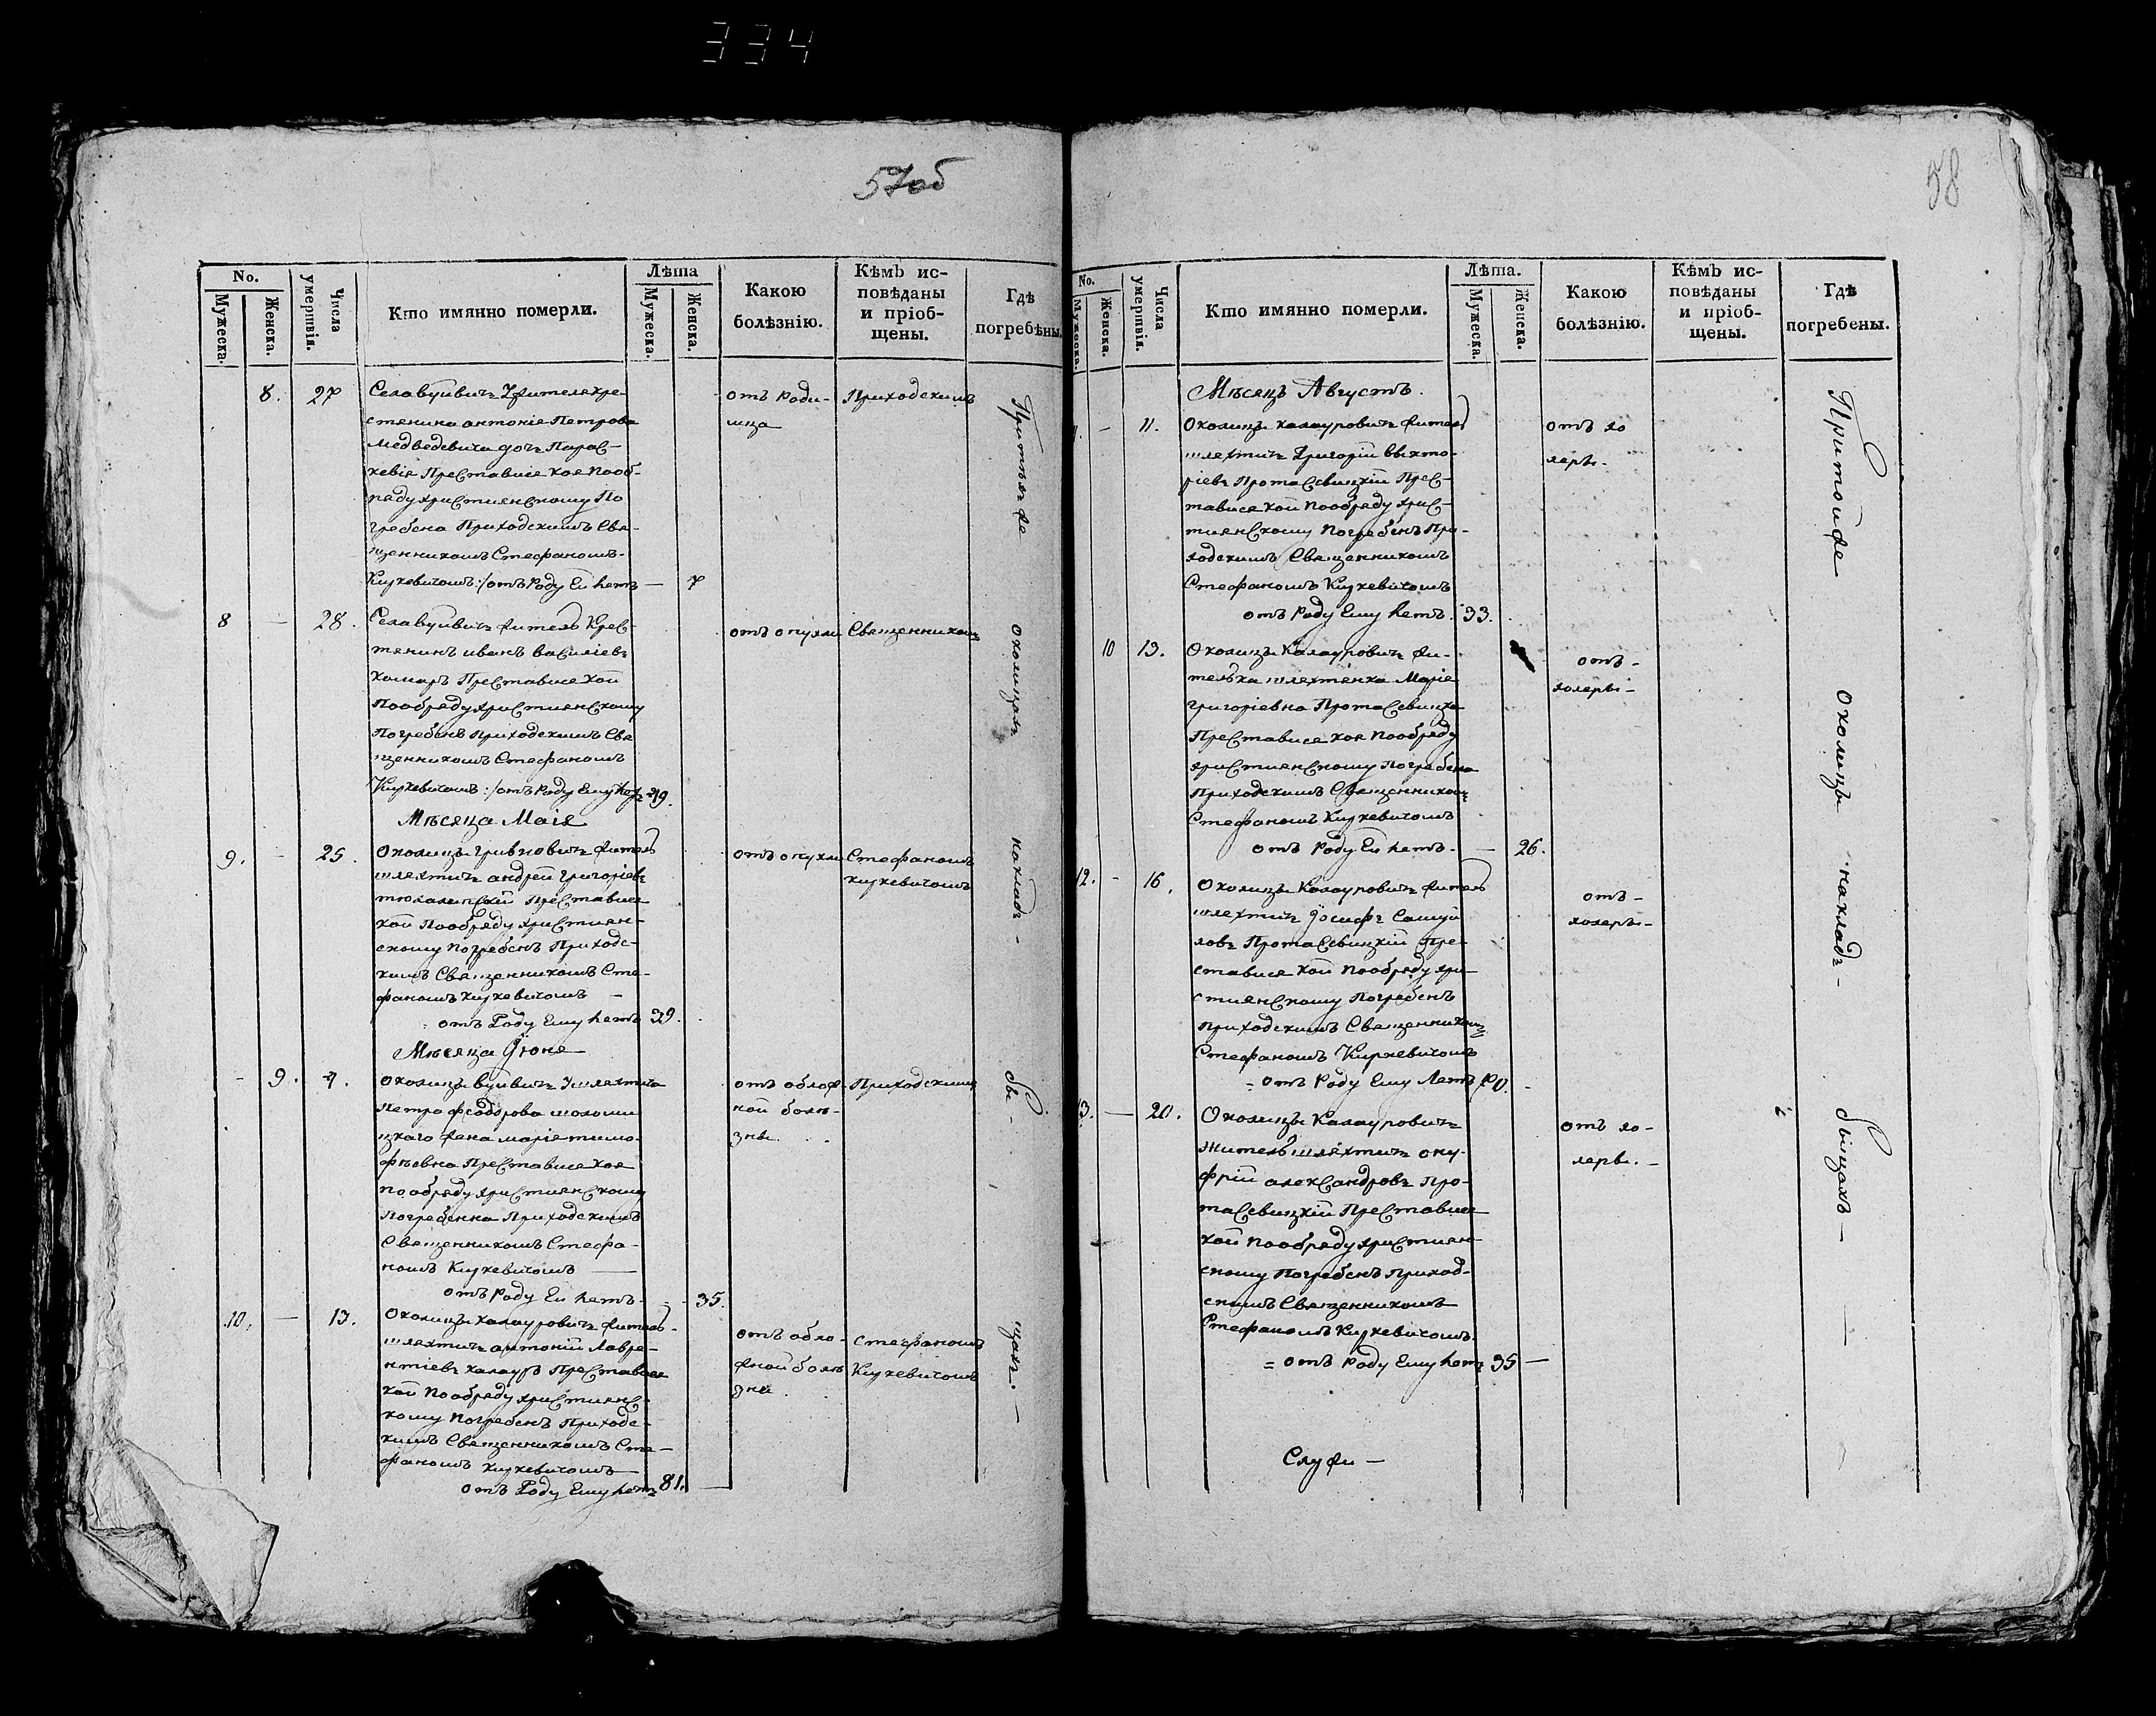 334
57об
No.
Мужеска.
Женска.
Числа умертвія.
Кто имянно померли.
Лѣта
Мужеска.
Женска.
Какою болѣзнію.
Кѣмъ ис-
повѣданы
и пріоб-
щены.
Гдѣ
погребѣны.
8. 27
Села вуйвичъ Жителя кре-
стянина антонія Петрова
Медведевича дочъ Парас-
кевія Преставися коя Пооб-
ряду християнскому По
гребена Приходскимъ Свя-
щенникомъ Стефаномъ-
Киркевичомъ :/ отъ Роду Ей летъ — 7
отъ Роди-
мца
Приходскимъ
8 — 28.
Села вуйвичъ житель Крес-
тянинъ иванъ василіевъ
комаръ Преставися кой
Пообряду християнскому
Погребенъ Приходскимъ Свя
щенникомъ Стефаномъ
Киркевичомъ :/ отъ Роду Ему лет 39.
отъ опухли
Священникомъ
Мѣсяца Маія
9. — 25.
Околицы Гривковичъ житель
шляхтичъ андрей Григоріевъ
Преставися
кой Пообряду християн-
скому погребенъ Приходс-
кимъ Священникомъ Сте-
фаномъ киркевичомъ —
отъ Роду Ему летъ 39.
отъ опухли
Стефаномъ
киркевичомъ
Мѣсяца Іюня
- 9. 7.
Околицы вуйвичъ Шляхтича
Петра феодорова
цкаго жена марія тимо-
фѣевна Преставися коя
пообряду християнскому
Погребенна Приходскимъ
Священникомъ Стефа-
номъ Киркевичомъ —
отъ Роду Ей летъ - 35.
отъ облож-
ной болѣ-
зни.
Приходскимъ
10. — 13.
Околицы калауровичъ житель
шляхтичъ антоній Лавре-
нтіевъ калауръ Преставися
кой Пообряду християнс-
кому погребенъ Приходс-
кимъ Священникомъ Сте-
фаномъ киркевичомъ —
отъ Роду Ему летъ 81. —
отъ обло-
жной болѣ
зни.
стефаномъ
Киркевичомъ
Притой же околицы на кладбищахъ. —
58
No.
Мужеска.
Женска.
Числа умертвія.
Кто имянно померли.
Лѣта.
Мужеска.
Женска.
Какою
болѣзнію.
Кѣмъ ис-
повѣданы
и пріоб-
щены.
Гдѣ
погребены.
Мѣсяцъ Августъ.
11. — 11.
Околицы калауровичъ житель
шляхтичъ Григорій выкто-
ріевъ Протасевицкій Прес-
тавися кой Пообряду хрис-
тиянскому Погребенъ При-
ходскимъ Священникомъ
Стефаномъ Киркевичомъ
отъ Роду Ему летъ. 33.
отъ хо
леры.
10 13.
Околицы Калауровичъ жи-
телька шляхтянка Марія
Григоріевна Протасевицка
Преставися коя Пообряду
християнскому погребена
Приходскимъ Священникомъ
Стефаномъ Киркевичомъ
отъ Роду Ей летъ. — 26.
отъ -
холеры -
12. - 16.
Околицы Калауровичъ житель
шляхтичъ Іосифъ Самуй
ловъ Протасевицкій Пре-
ставися кой Пообряду хри-
стиянскому Погребенъ
Приходскимъ Священникомъ
Стефаномъ Киркевичомъ
= отъ Роду Ему Летъ
отъ -
холеры -
13. — 20.
Околицы Калауровичъ
Житель шляхтичъ ону-
фрій александровъ Про-
тасевицкій Преставися
кой Пообряду християн-
скому Погребенъ Приход-
скимъ Священникомъ
Стефаномъ Киркевичомъ.
= отъ Роду Ему летъ 35 —
отъ хо-
леры. -
Притой же околицы на кладбищахъ —
Служи —